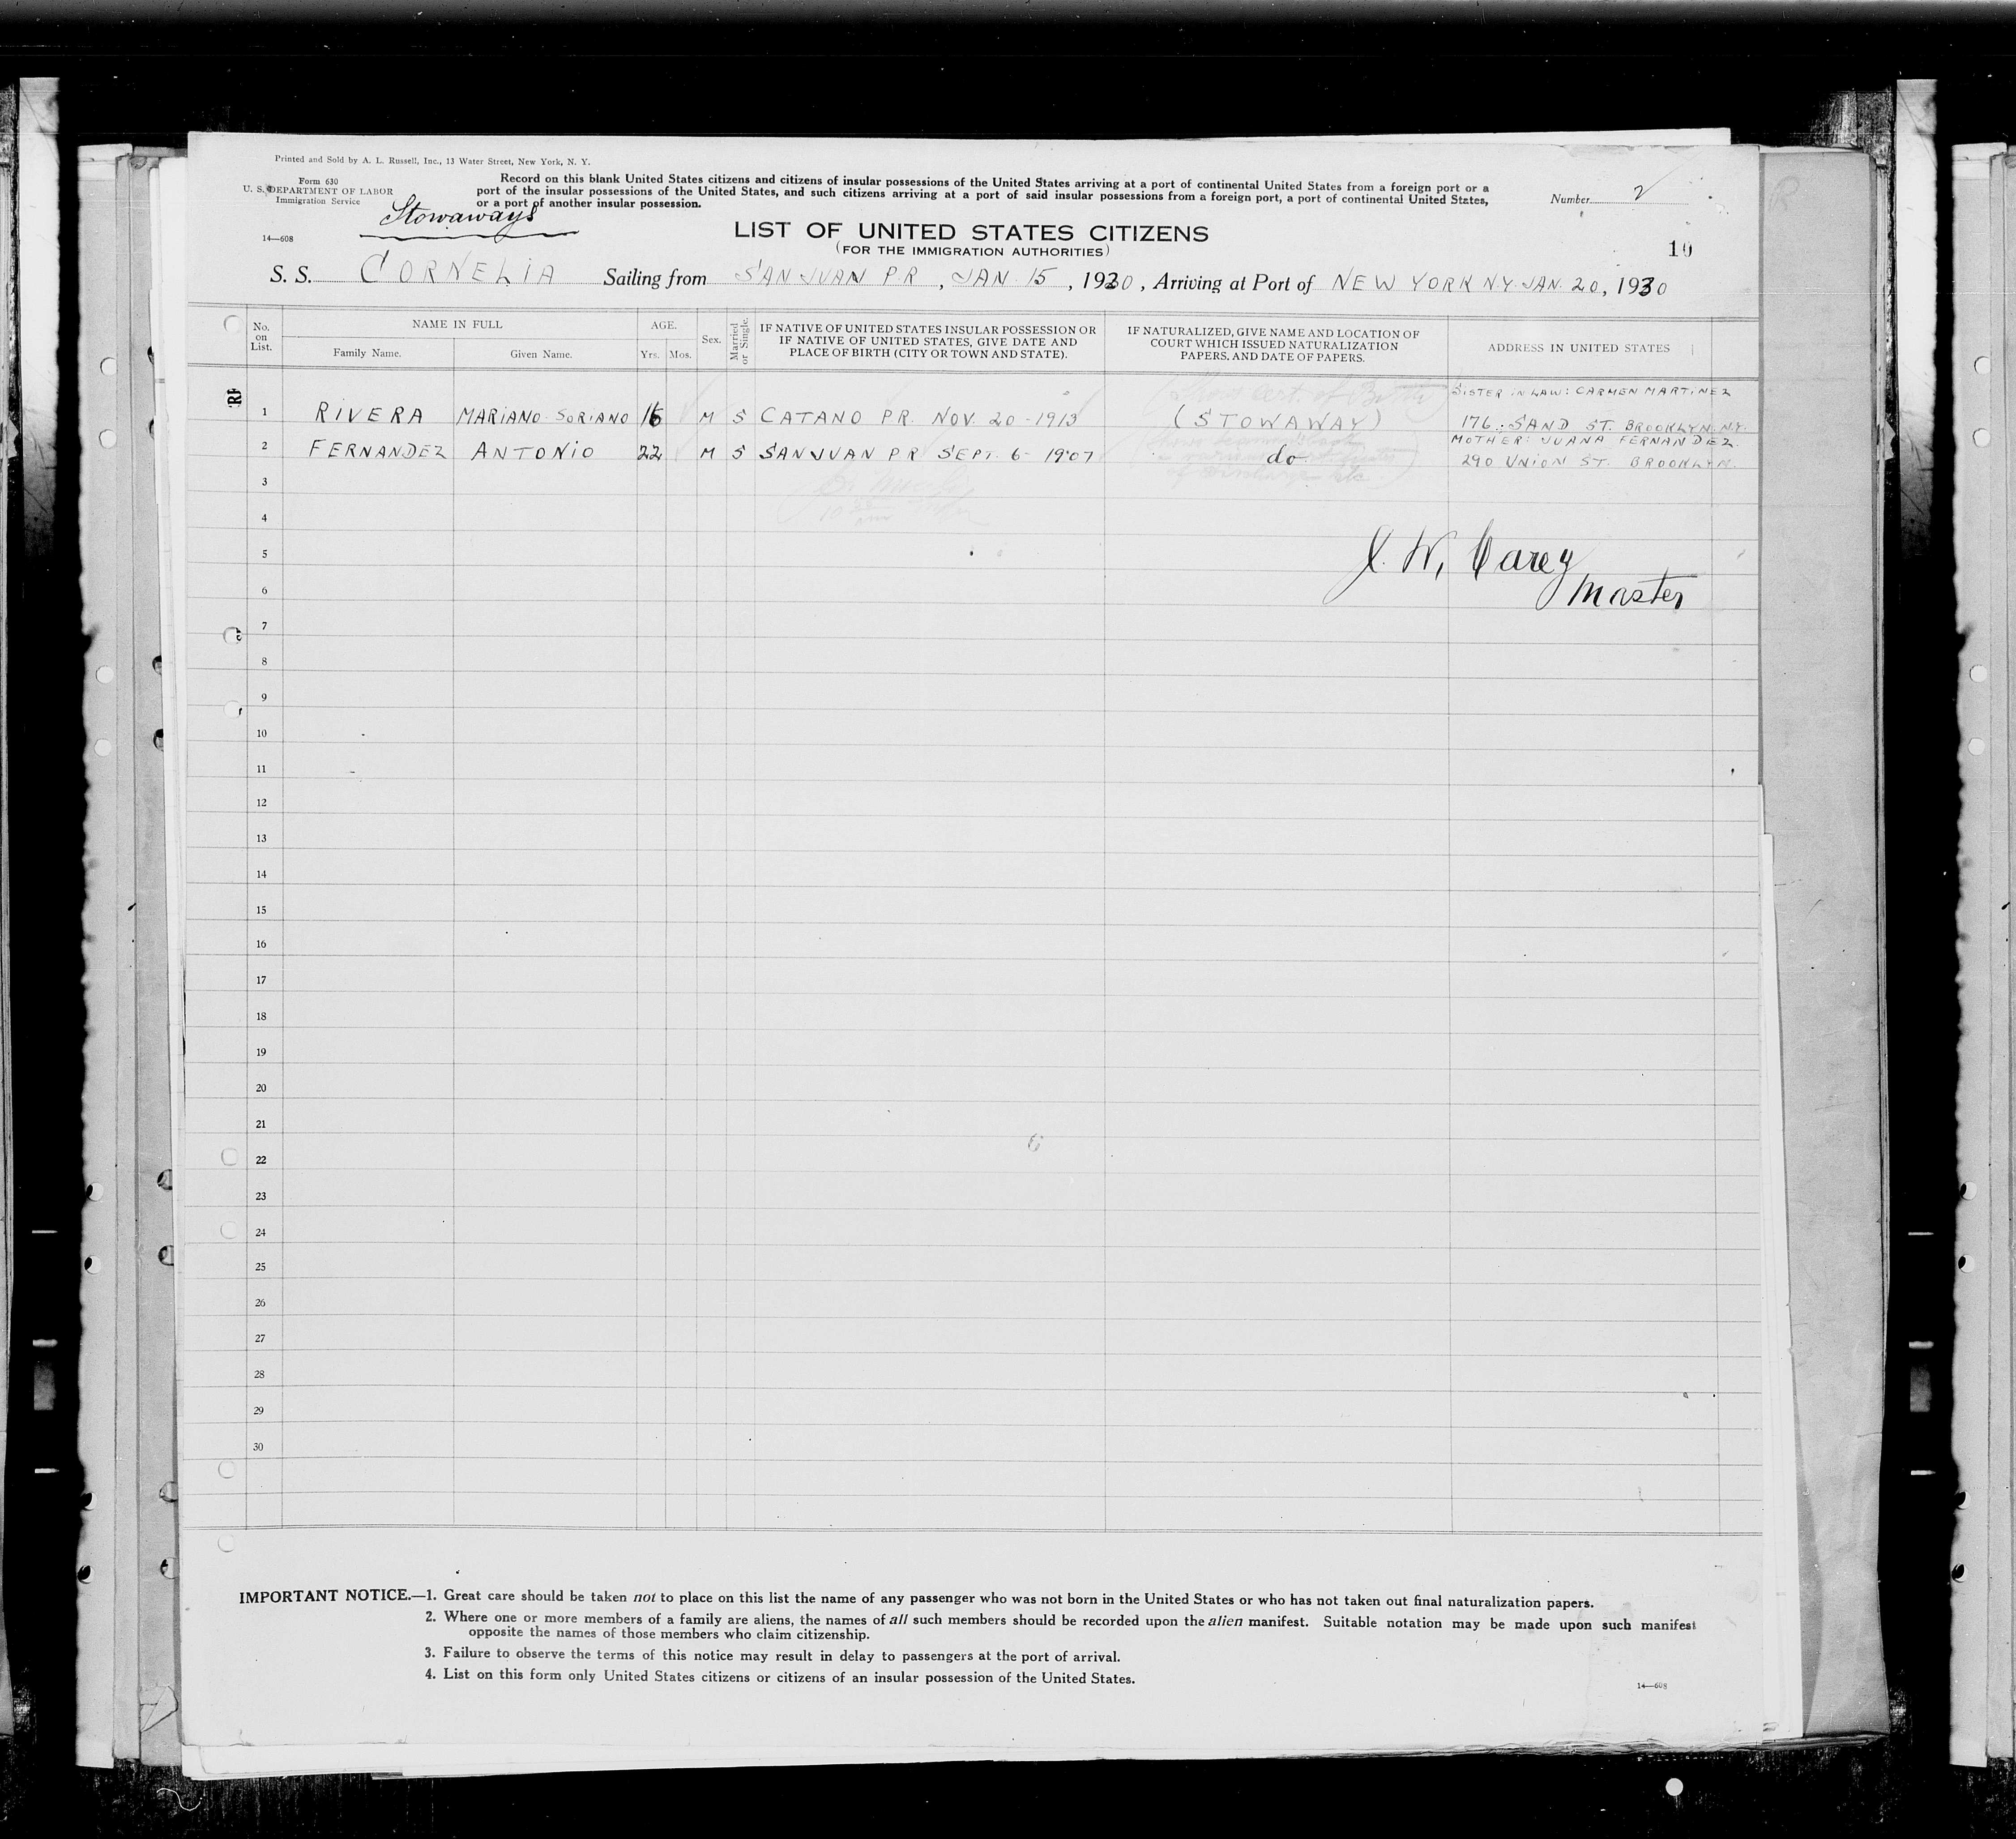 Printed and Sold by A. L. Russell, Inc., 13 Water Street, New York, N. Y.
Form 630
U. S. DEPARTMENT OF LABOR
Immigration Service
Record on this blank United States citizens and citizens of insular possessions of the United States arriving at a port of continental United States from a foreign port or a
port of the insular possessions of the United States, and such citizens arriving at a port of said insular possessions from a foreign port, a port of continental United States,
or a port of another insular possession.
Number 2
Stowaways
14—608
LIST OF UNITED STATES CITIZENS
(FOR THE IMMIGRATION AUTHORITIES)
10
S. S. CORNELIA Sailing from SAN JUAN P R, JAN. 15, 1930, Arriving at Port of NEW YORK N.Y. JAN. 20, 1930
No. on List.
NAME IN FULL
Family Name.
Given Name.
AGE.
Yrs.
Mos.
Sex.
Married or Single.
IF NATIVE OF UNITED STATES INSULAR POSSESSION OR
IF NATIVE OF UNITED STATES, GIVE DATE AND
PLACE OF BIRTH (CITY OR TOWN AND STATE).
IF NATURALIZED, GIVE NAME AND LOCATION OF
COURT WHICH ISSUED NATURALIZATION
PAPERS, AND DATE OF PAPERS.
ADDRESS IN UNITED STATES
SISTER IN LAW: CARMEN MARTINEZ
1 RIVERA MARIANO SORIANO 16 M S CATANO P R. NOV. 20 - 1913 (STOWAWAY) 176 SAND ST. BROOKLYN. N.Y.
MOTHER: JUANA FERNANDEZ.
2 FERNANDEZ ANTONIO 22 M S SAN JUAN P R SEPT. 6 - 1907 do 290 UNION ST. BROOKLYN.
3
4
5
J. W. Carey
6
Master
7
8
9
10
11
12
13
14
15
16
17
18
19
20
21
22
23
24
25
26
27
28
29
30
IMPORTANT NOTICE.—1. Great care should be taken not to place on this list the name of any passenger who was not born in the United States or who has not taken out final naturalization papers.
2. Where one or more members of a family are aliens, the names of all such members should be recorded upon the alien manifest. Suitable notation may be made upon such manifest
opposite the names of those members who claim citizenship.
3. Failure to observe the terms of this notice may result in delay to passengers at the port of arrival.
4. List on this form only United States citizens or citizens of an insular possession of the United States.
14—608